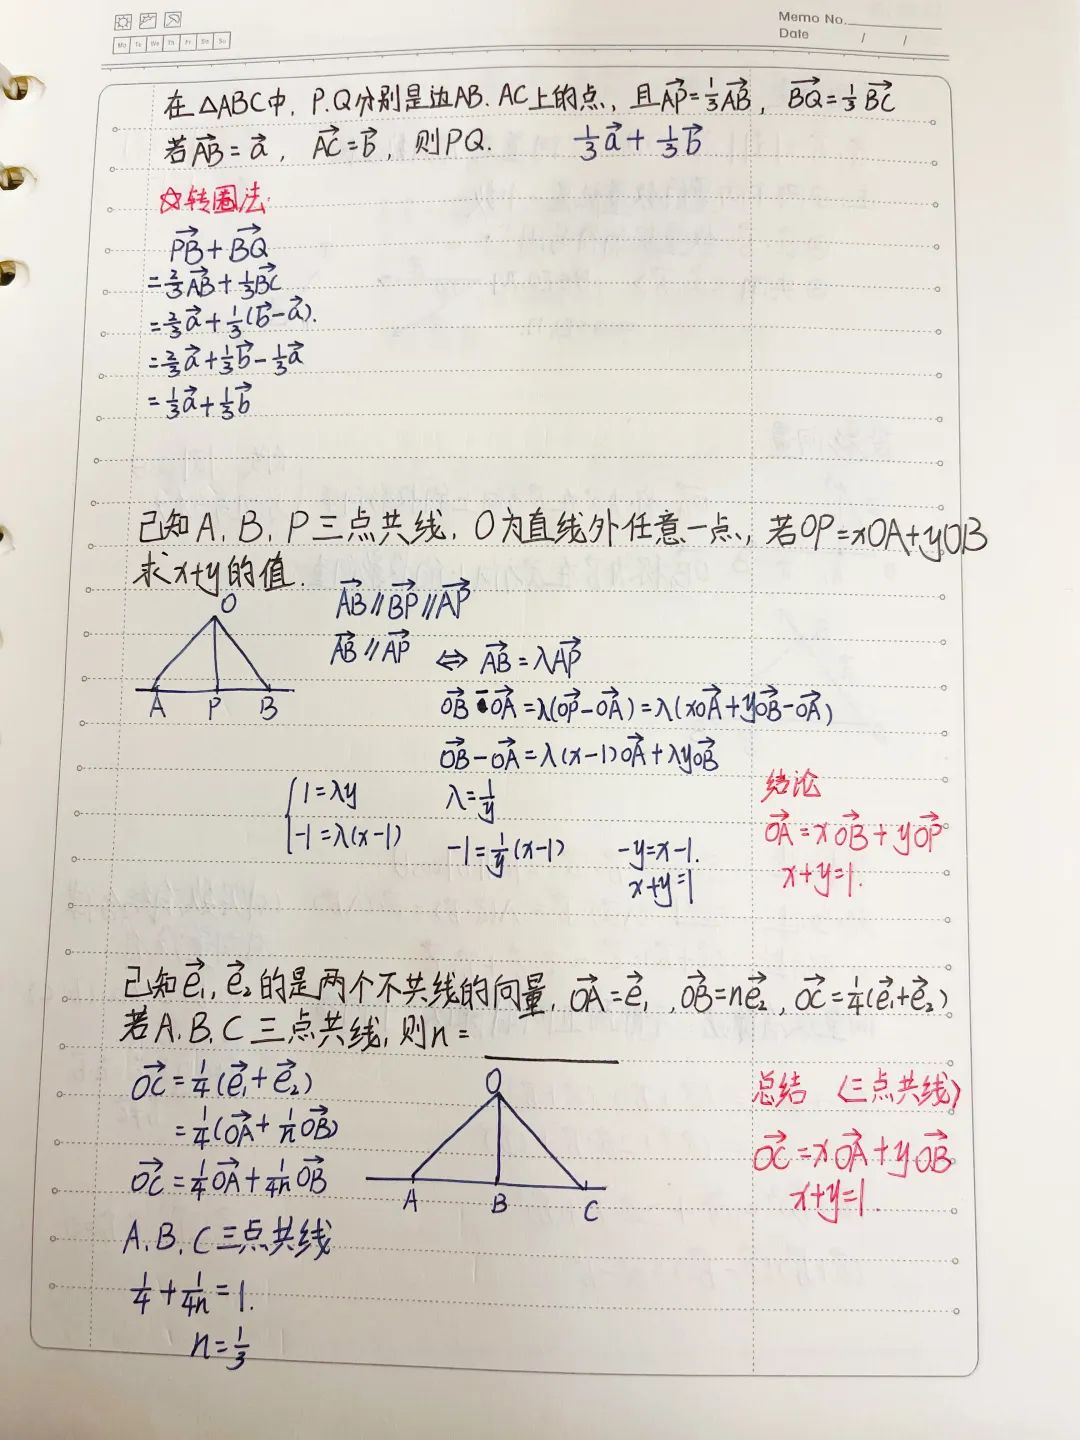 Memo No.
Date / /
Mo Tu We Th Fr Sa Su
在△ABC中, P.Q分别是边AB.AC上的点, 且AP→=1/3AB→, BQ→=1/3BC→
若AB→=a→, AC→=b→, 则PQ. 1/3a→+1/3b→
☆转圈法
PB→+BQ→
=2/3AB→+1/3BC→
=2/3a→+1/3(b→-a→).
=2/3a→+1/3b→-1/3a→
=1/3a→+1/3b→
已知A.B.P三点共线, O为直线外任意一点, 若OP=xOA+yOB
求x+y的值.
O
A P B
AB→∥BP→∥AP→
AB→∥AP→ ⇔ AB→=λAP→
OB→-OA→=λ(OP→-OA→)=λ(xOA→+yOB→-OA→)
OB→-OA→=λ(x-1)OA→+λyOB→
{1=λy λ=1/y
-1=λ(x-1) -1=1/y(x-1) -y=x-1.
x+y=1
结论
OA→=xOB→+yOP→
x+y=1.
已知e₁→, e₂→的是两个不共线的向量, OA→=e₁→, OB→=ne₂→, OC→=1/4(e₁→+e₂→)
若A.B.C三点共线, 则n=
OC→=1/4(e₁→+e₂→)
=1/4(OA→+1/nOB→)
OC→=1/4OA→+1/4nOB→
A.B.C三点共线
1/4+1/4n=1.
n=1/3
O
A B C
总结 (三点共线)
OC→=xOA→+yOB→
x+y=1.